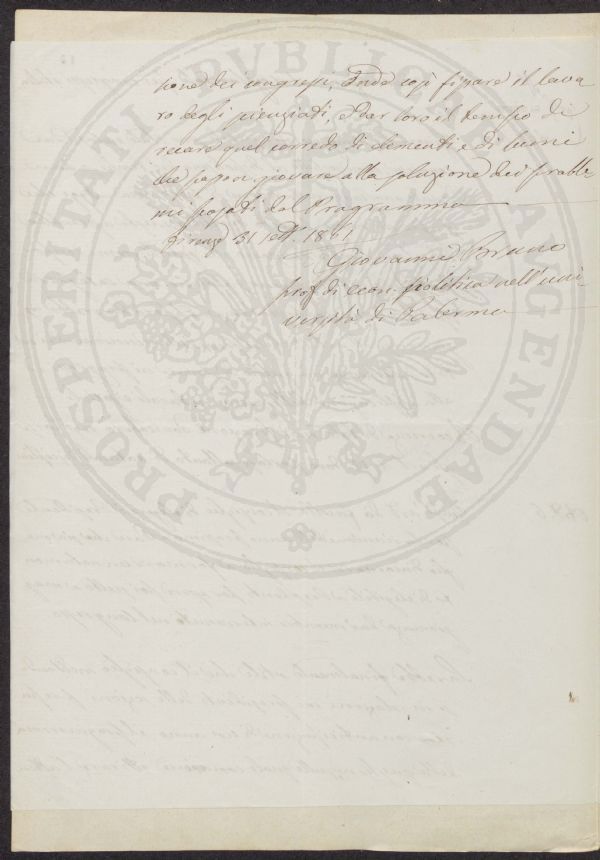 zione dei congressi, onde così fissare il lavo
ro degli scienziati, e dar loro il tempo di
recare quel corredo di elementi e di lumi
che possa giovare alla soluzione dei proble-
mi posati dal Programma
Firenze 31 sett. 1861
Giovanni Bruno
prof. di econ. politica nell'uni-
versità di Palermo
PROSPERITATI PUBLICAE AUGENDAE